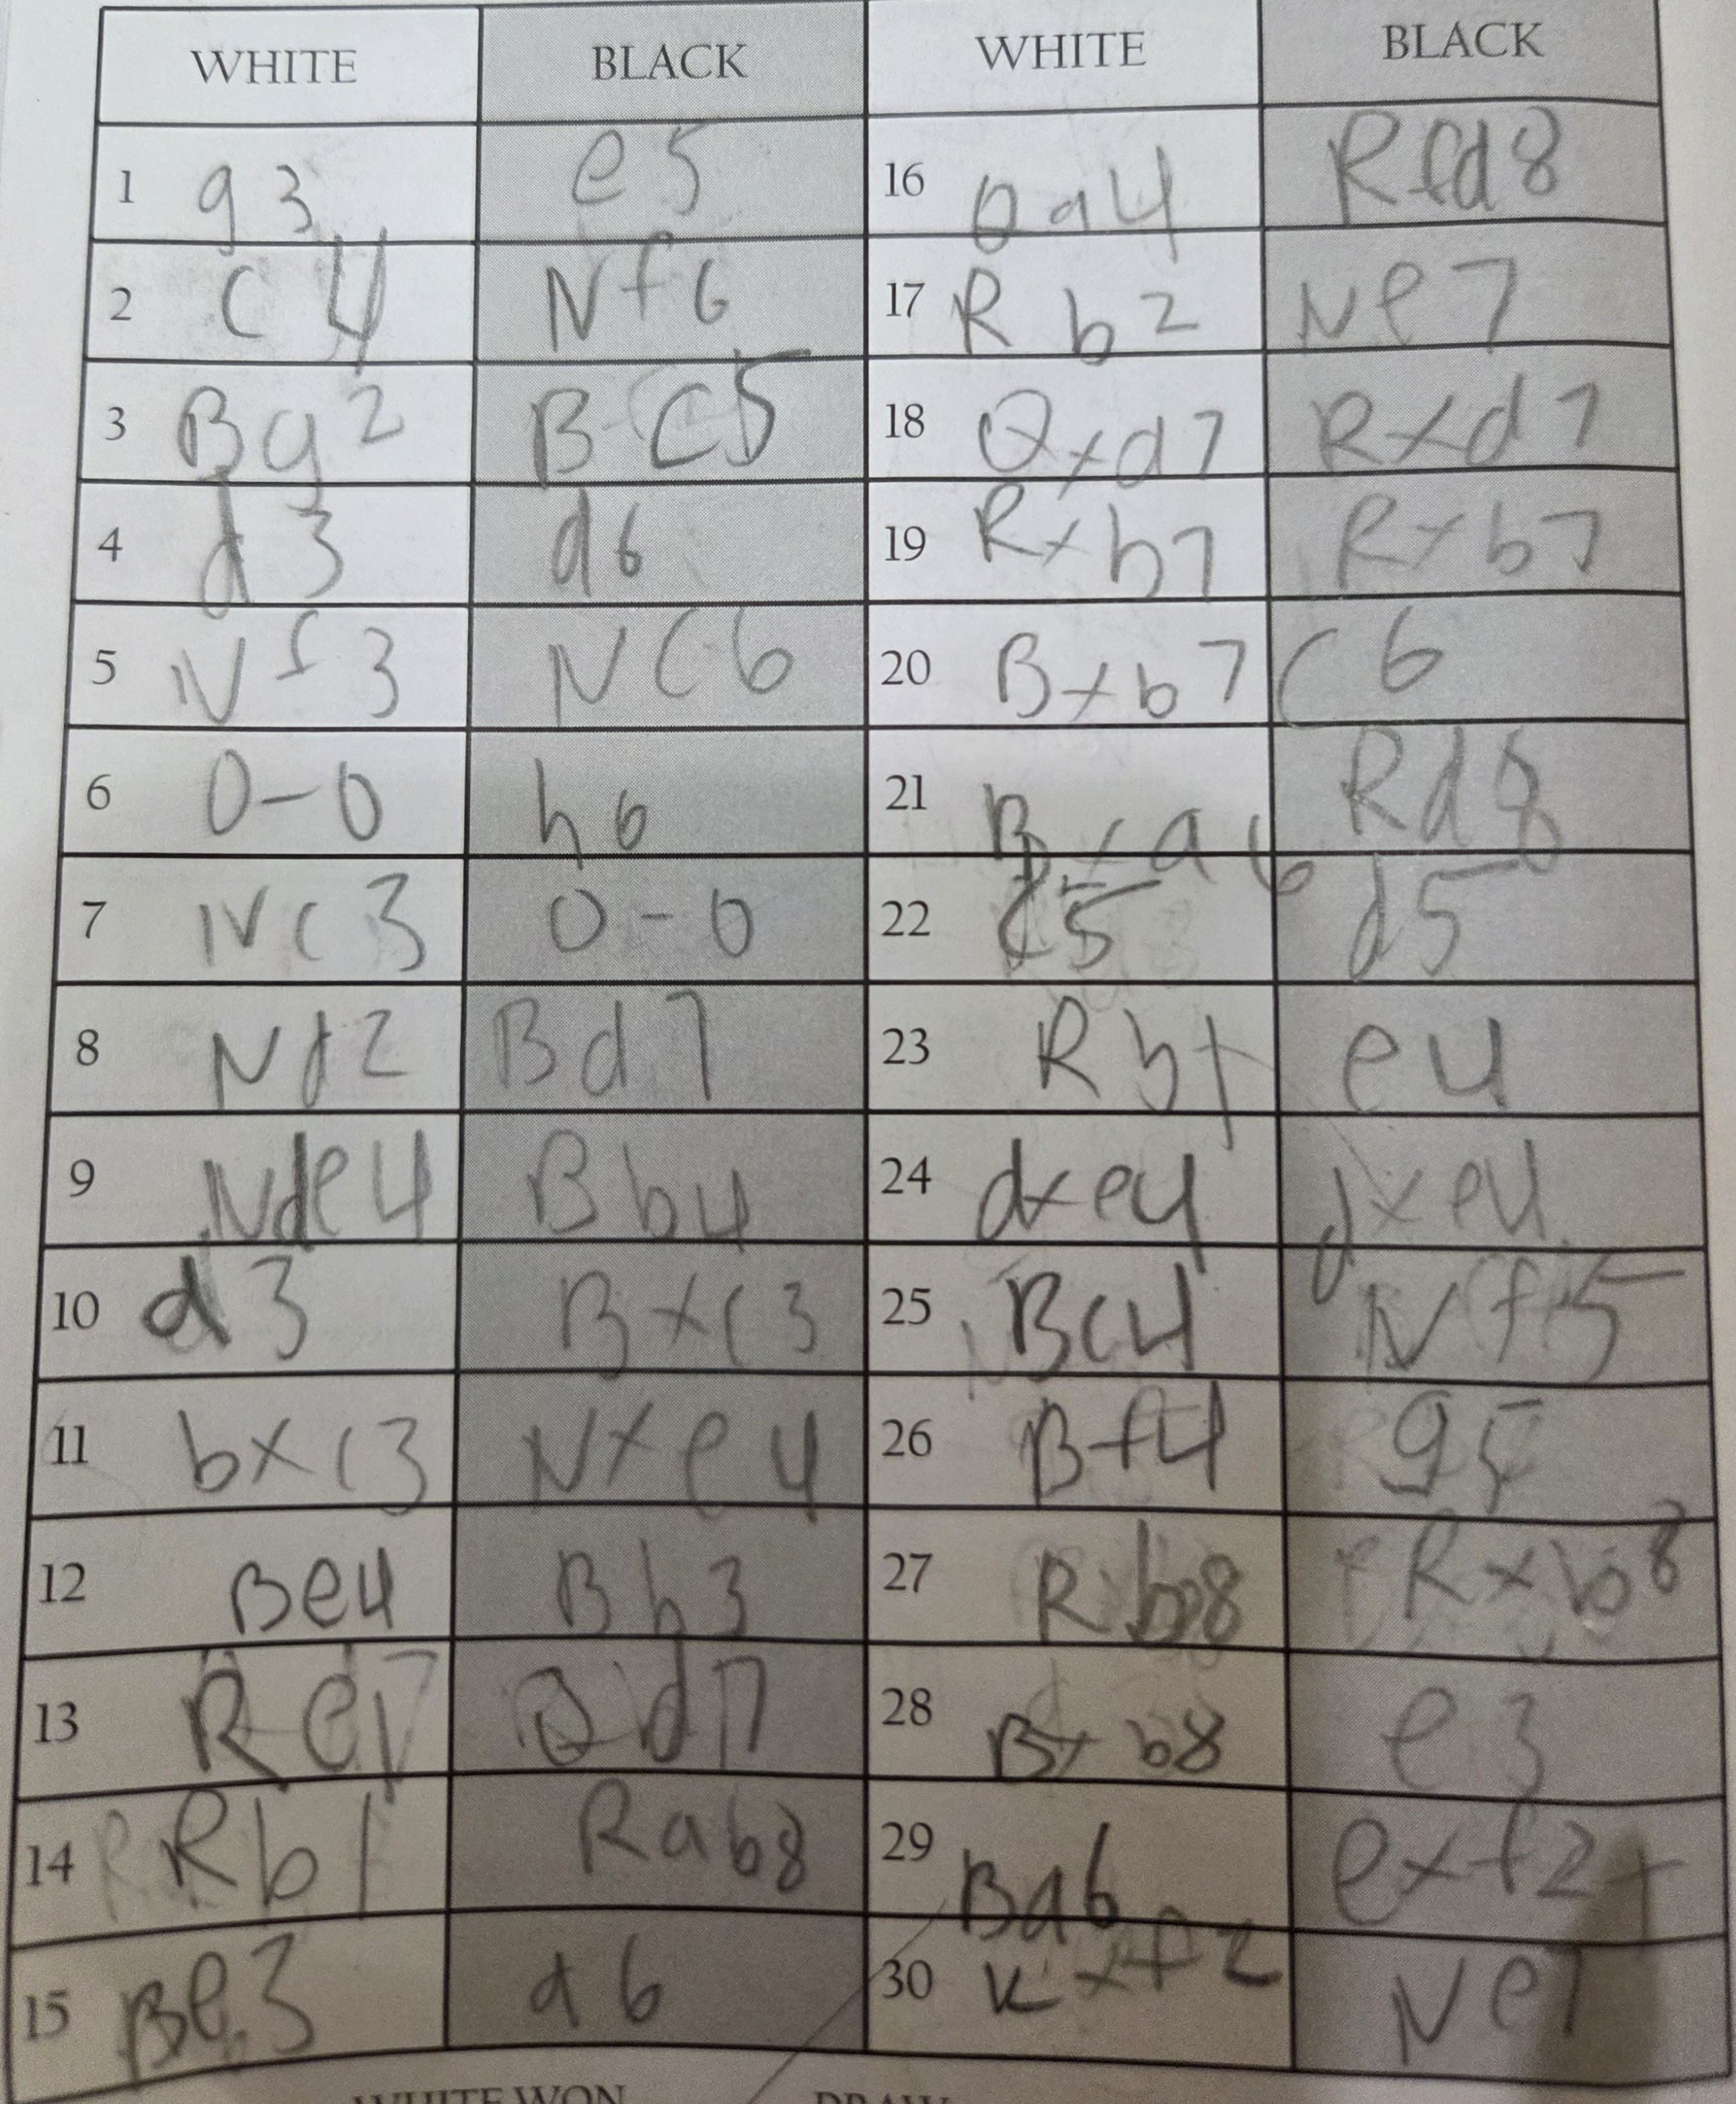 WHITE BLACK WHITE BLACK
1 g3 e5 16 Qa4 Rfd8
2 c4 Nf6 17 Rb2 Ne7
3 Bg2 Bc5 18 Qxd7 Rxd7
4 d3 d6 19 Rxb7 Rxb7
5 Nf3 Nc6 20 Bxb7 c6
6 0-0 h6 21 Bxa6 Rd8
7 Nc3 0-0 22 c5 d5
8 Nd2 Bd7 23 Rb1 e4
9 Nde4 Bb4 24 dxe4 dxe4
10 d3 Bxc3 25 Bc4 Nf5
11 bxc3 Nxe4 26 Bf4 g5
12 Be4 Bh3 27 Rb8 Rxb8
13 Re1 Qd7 28 Bxb8 e3
14 Rb1 Rab8 29 Ba6 exf2+
15 Be3 a6 30 Kxf2 Ne7
WHITE WON DRAW